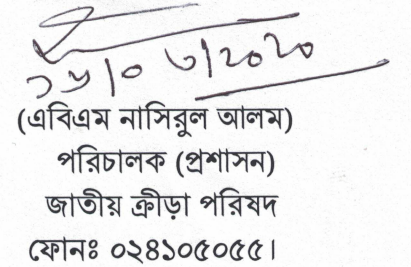 ১৮/০৩/২০২০
(এবিএম নাসিরুল আলম)
পরিচালক (প্রশাসন)
জাতীয় ক্রীড়া পরিষদ
ফোনঃ ০২৪১০৫০৫৫।